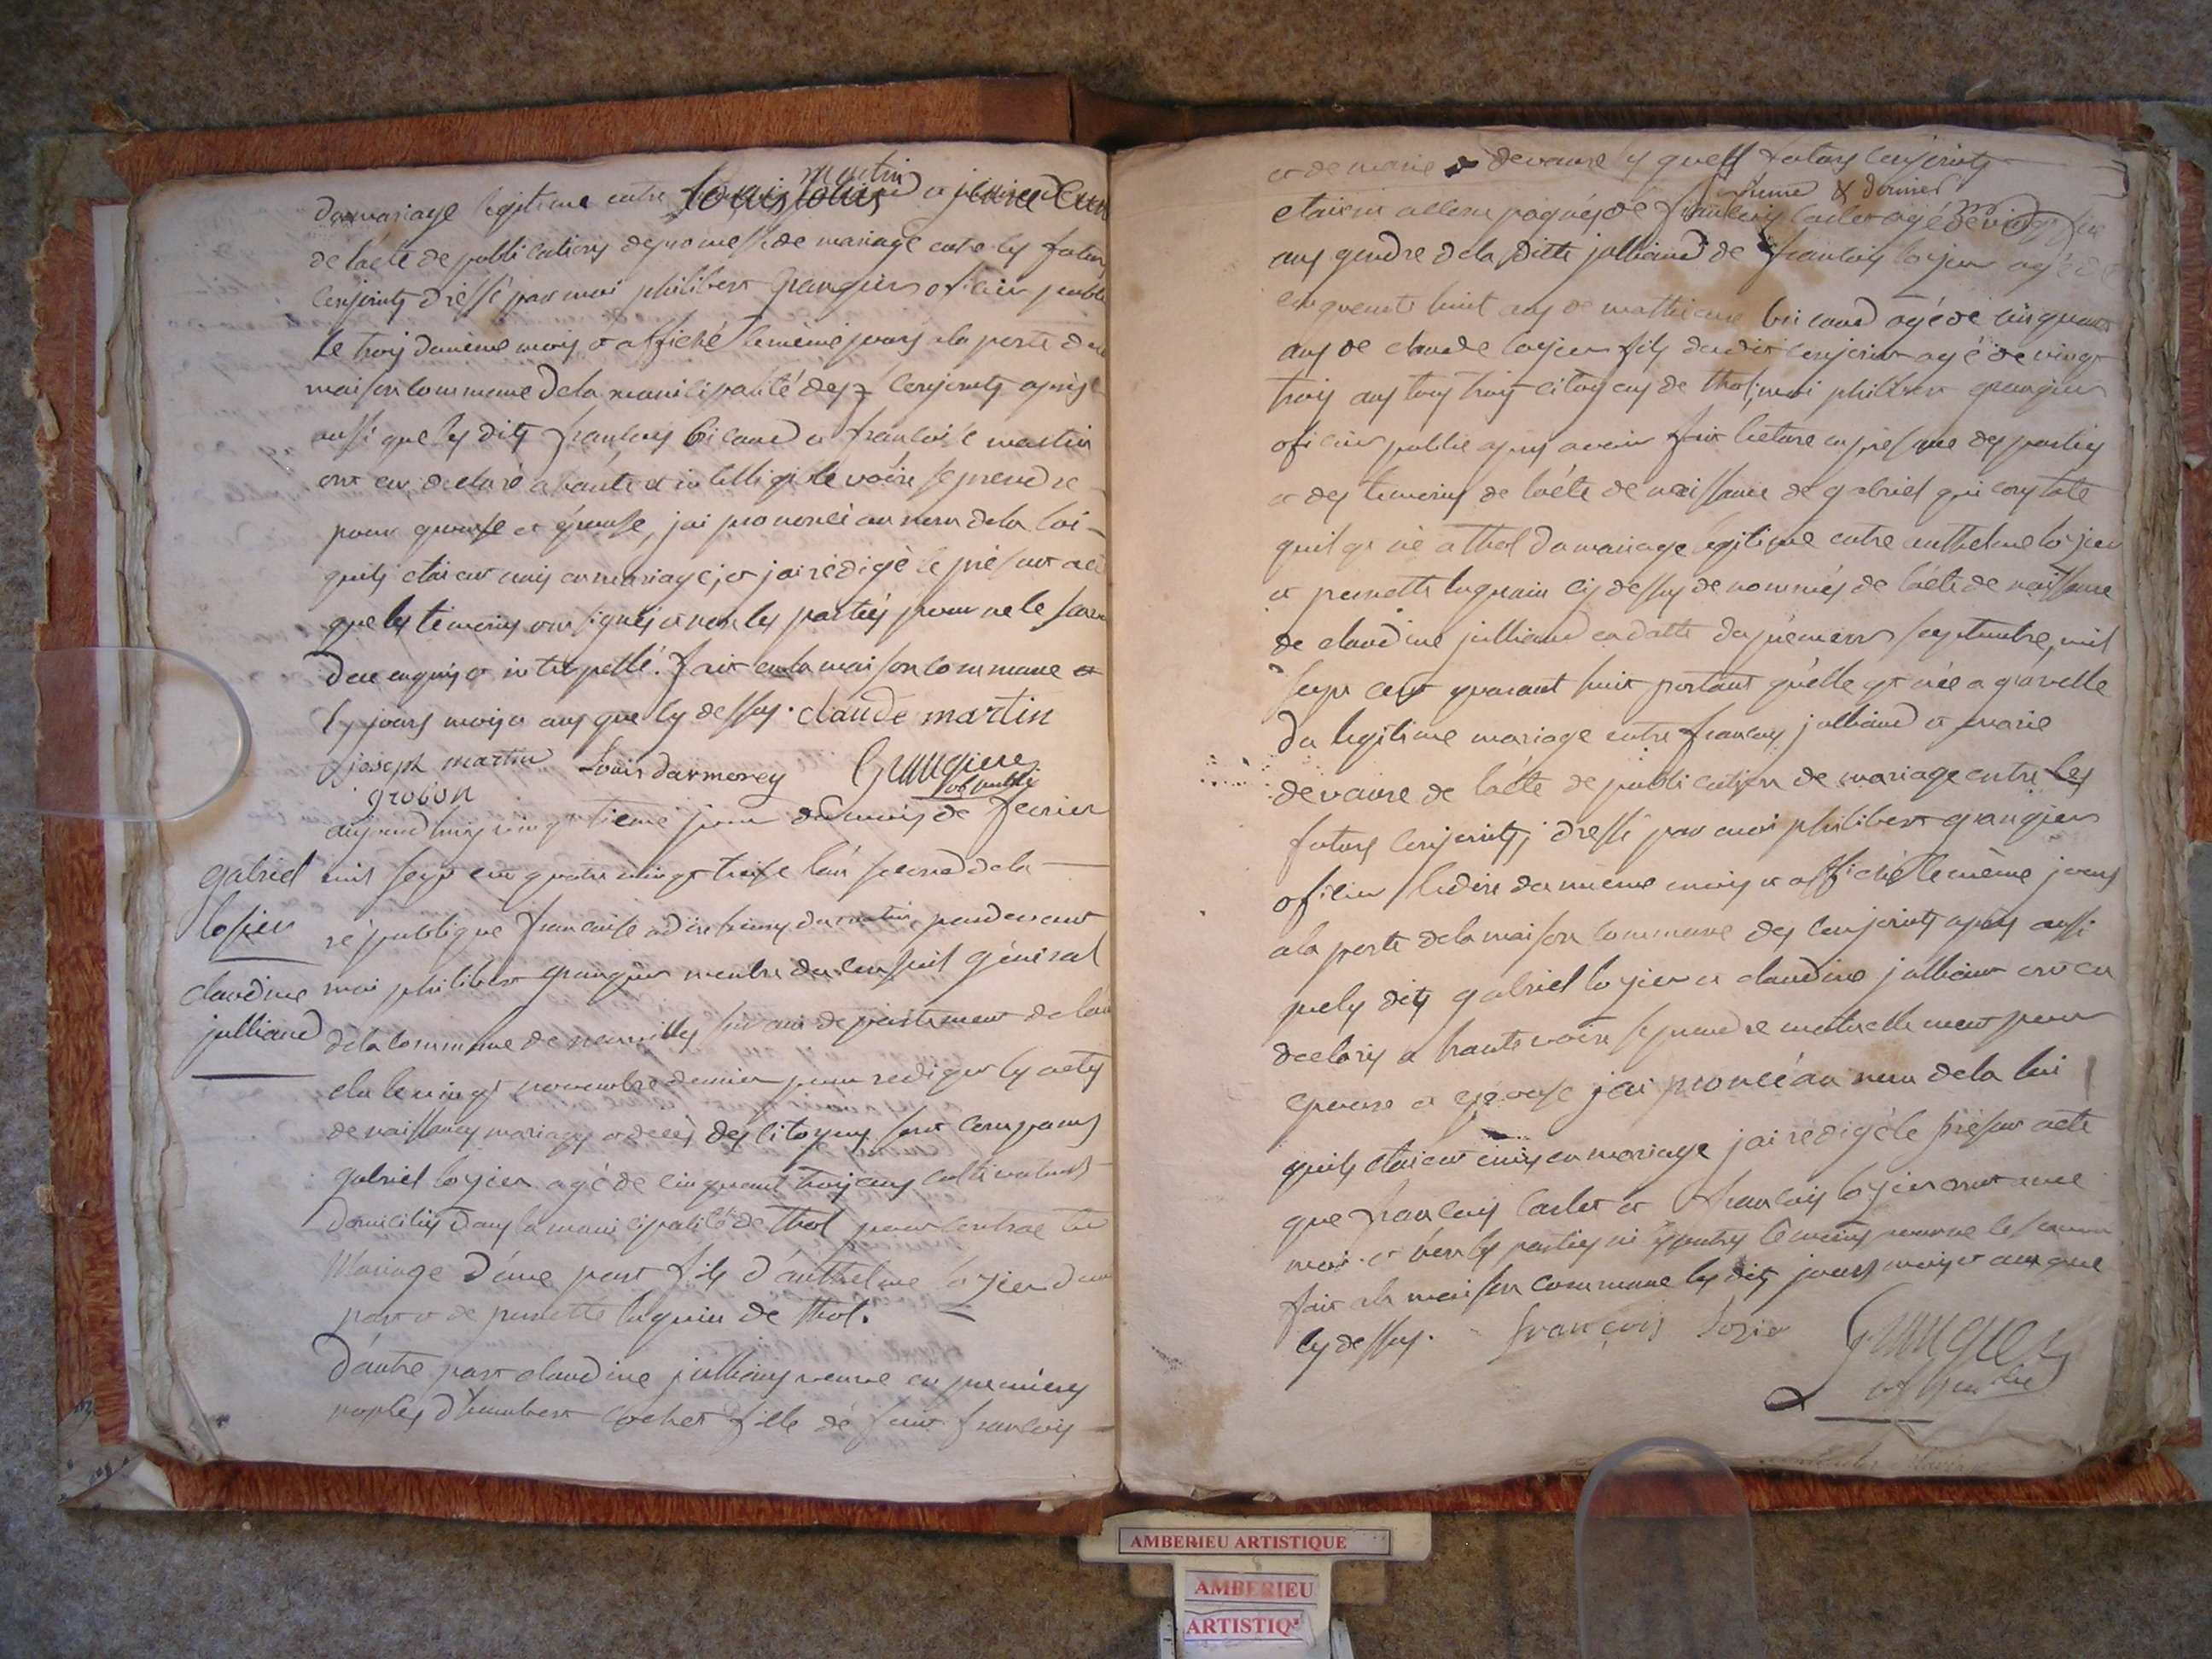 du mariage legitime entre Louis martin et
de lacte de publications de promesse de mariage entre les futurs
conjoints dressé par moi philibert Grangier oficier public
le trois du même mois et affiché le même jours a la porte de la
maison commune de la municipalité des conjoints après
aussi que les dits francois bicand et francoise martin
ont eu declaré a haute et intelligible voire se prendre
pour epouse et epouse, jai prononcé au nom de la loi
quils etaient unis en mariage, et jai rédigé le présent acte
que les témoins ont signés et non les parties pour ne le savoir
de ce enquis et interpellé. fait en la maison commune
les jours mois et ans que cy dessus. claude martin
joseph martin Louis darmerey Grangier
of public
grobon
aujourdhuy vingtieme jour du mois de fevrier
gabriel
mil sept cen quatre vingt treise lan second de la
losier
république francaise a dix heures du matin pardevant
claudine
moi philibert grangier menbre du conseil général
julliand
de la commune de neuvilly sur ain departement de lain
elu le vingt novembre dernier pour rediger les actes
de naissances mariages et decès des citoyens sont comparus
gabriel losier agé de cinquant trois ans cultivateur
domicilié dans la municipalité de thol pour contracter
Mariage d'une part fils d'anthelme losier d'une
part et de pernette luquin de thol.
d'autre part claudine julliand veuve en premières
noples d'humbert cochet fille de feut francois
et de marie devaure lesquels futurs conjoints
etaient accompagnés de francois carlet agé de vingt six
ans gendre de la ditte julliand de francois losier agé de
cinquante huit ans de mathieu bicand agé de cinquante
ans de claude losier fils du dit conjoint agé de vingt
trois ans tous trois citoyens de thol, moi philibert grangier
oficier public apres avoir fait lecture en presence des parties
et des temoins de lacte de naissance de gabriel qui constate
quil est né a thol du mariage legitime entre anthelme losier
et pernette luquin cy dessus denommés de lacte de naissance
de claudine julliand en datte du premier septembre mil
sept cent quarant huit portant quelle est née a gravelle
du legitime mariage entre francois julliand et marie
devaure de lacte de publication de mariage entre les
futurs conjoints, dressé par moi philibert grangier
oficier le dix du même mois et affiché le même jours
a la porte de la maison commune des conjoints apres aussi
que les dits gabriel losier et claudine julliand ont eu
declaré a haute voire se prendre mutuellement pour
epouse et epouse jai prononcé au nom de la loi
quils etaient unis en mariage jai redigé le présent acte
que francois carlet et francois losier ont avec
moi et non les parties ni les autres temoins pour ne le savoir
fait a la maison commune les dits jours mois et ans que
cy dessus. francois losier Grangier
of public
AMBERIEU ARTISTIQUE
AMBERIEU
ARTISTIQ